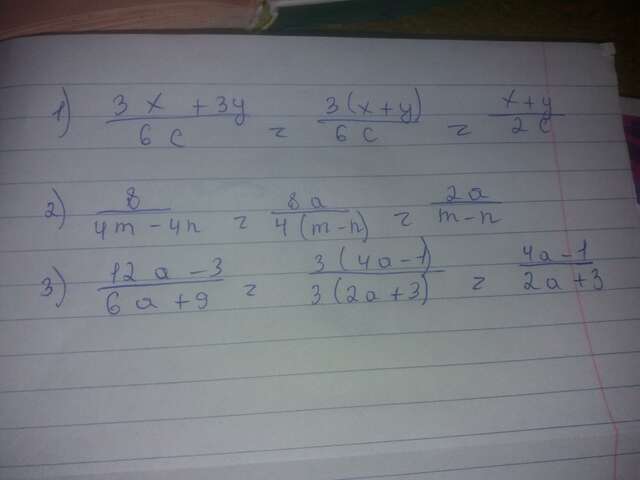 1) 3x + 3y / 6c = 3(x+y) / 6c = x+y / 2c
2) 8 / 4m - 4n = 8a / 4(m-n) = 2a / m-n
3) 12a - 3 / 6a + 9 = 3(4a-1) / 3(2a+3) = 4a-1 / 2a+3